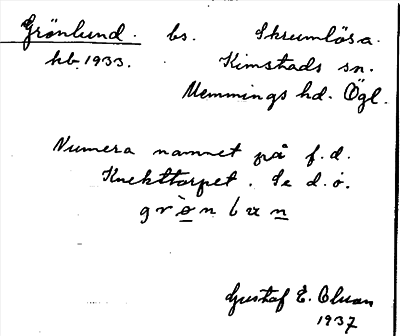 Grönlund. bs. Skrumlösa.
hb. 1933. Kimstads sn.
Memmings hd. Ögl.
Numera namnet på f.d.
Knekttorpet. Se d.o.
Gustaf E. Olsson
1937